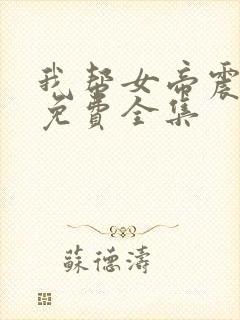 我帮女帝震
免費全集
蘇德濤